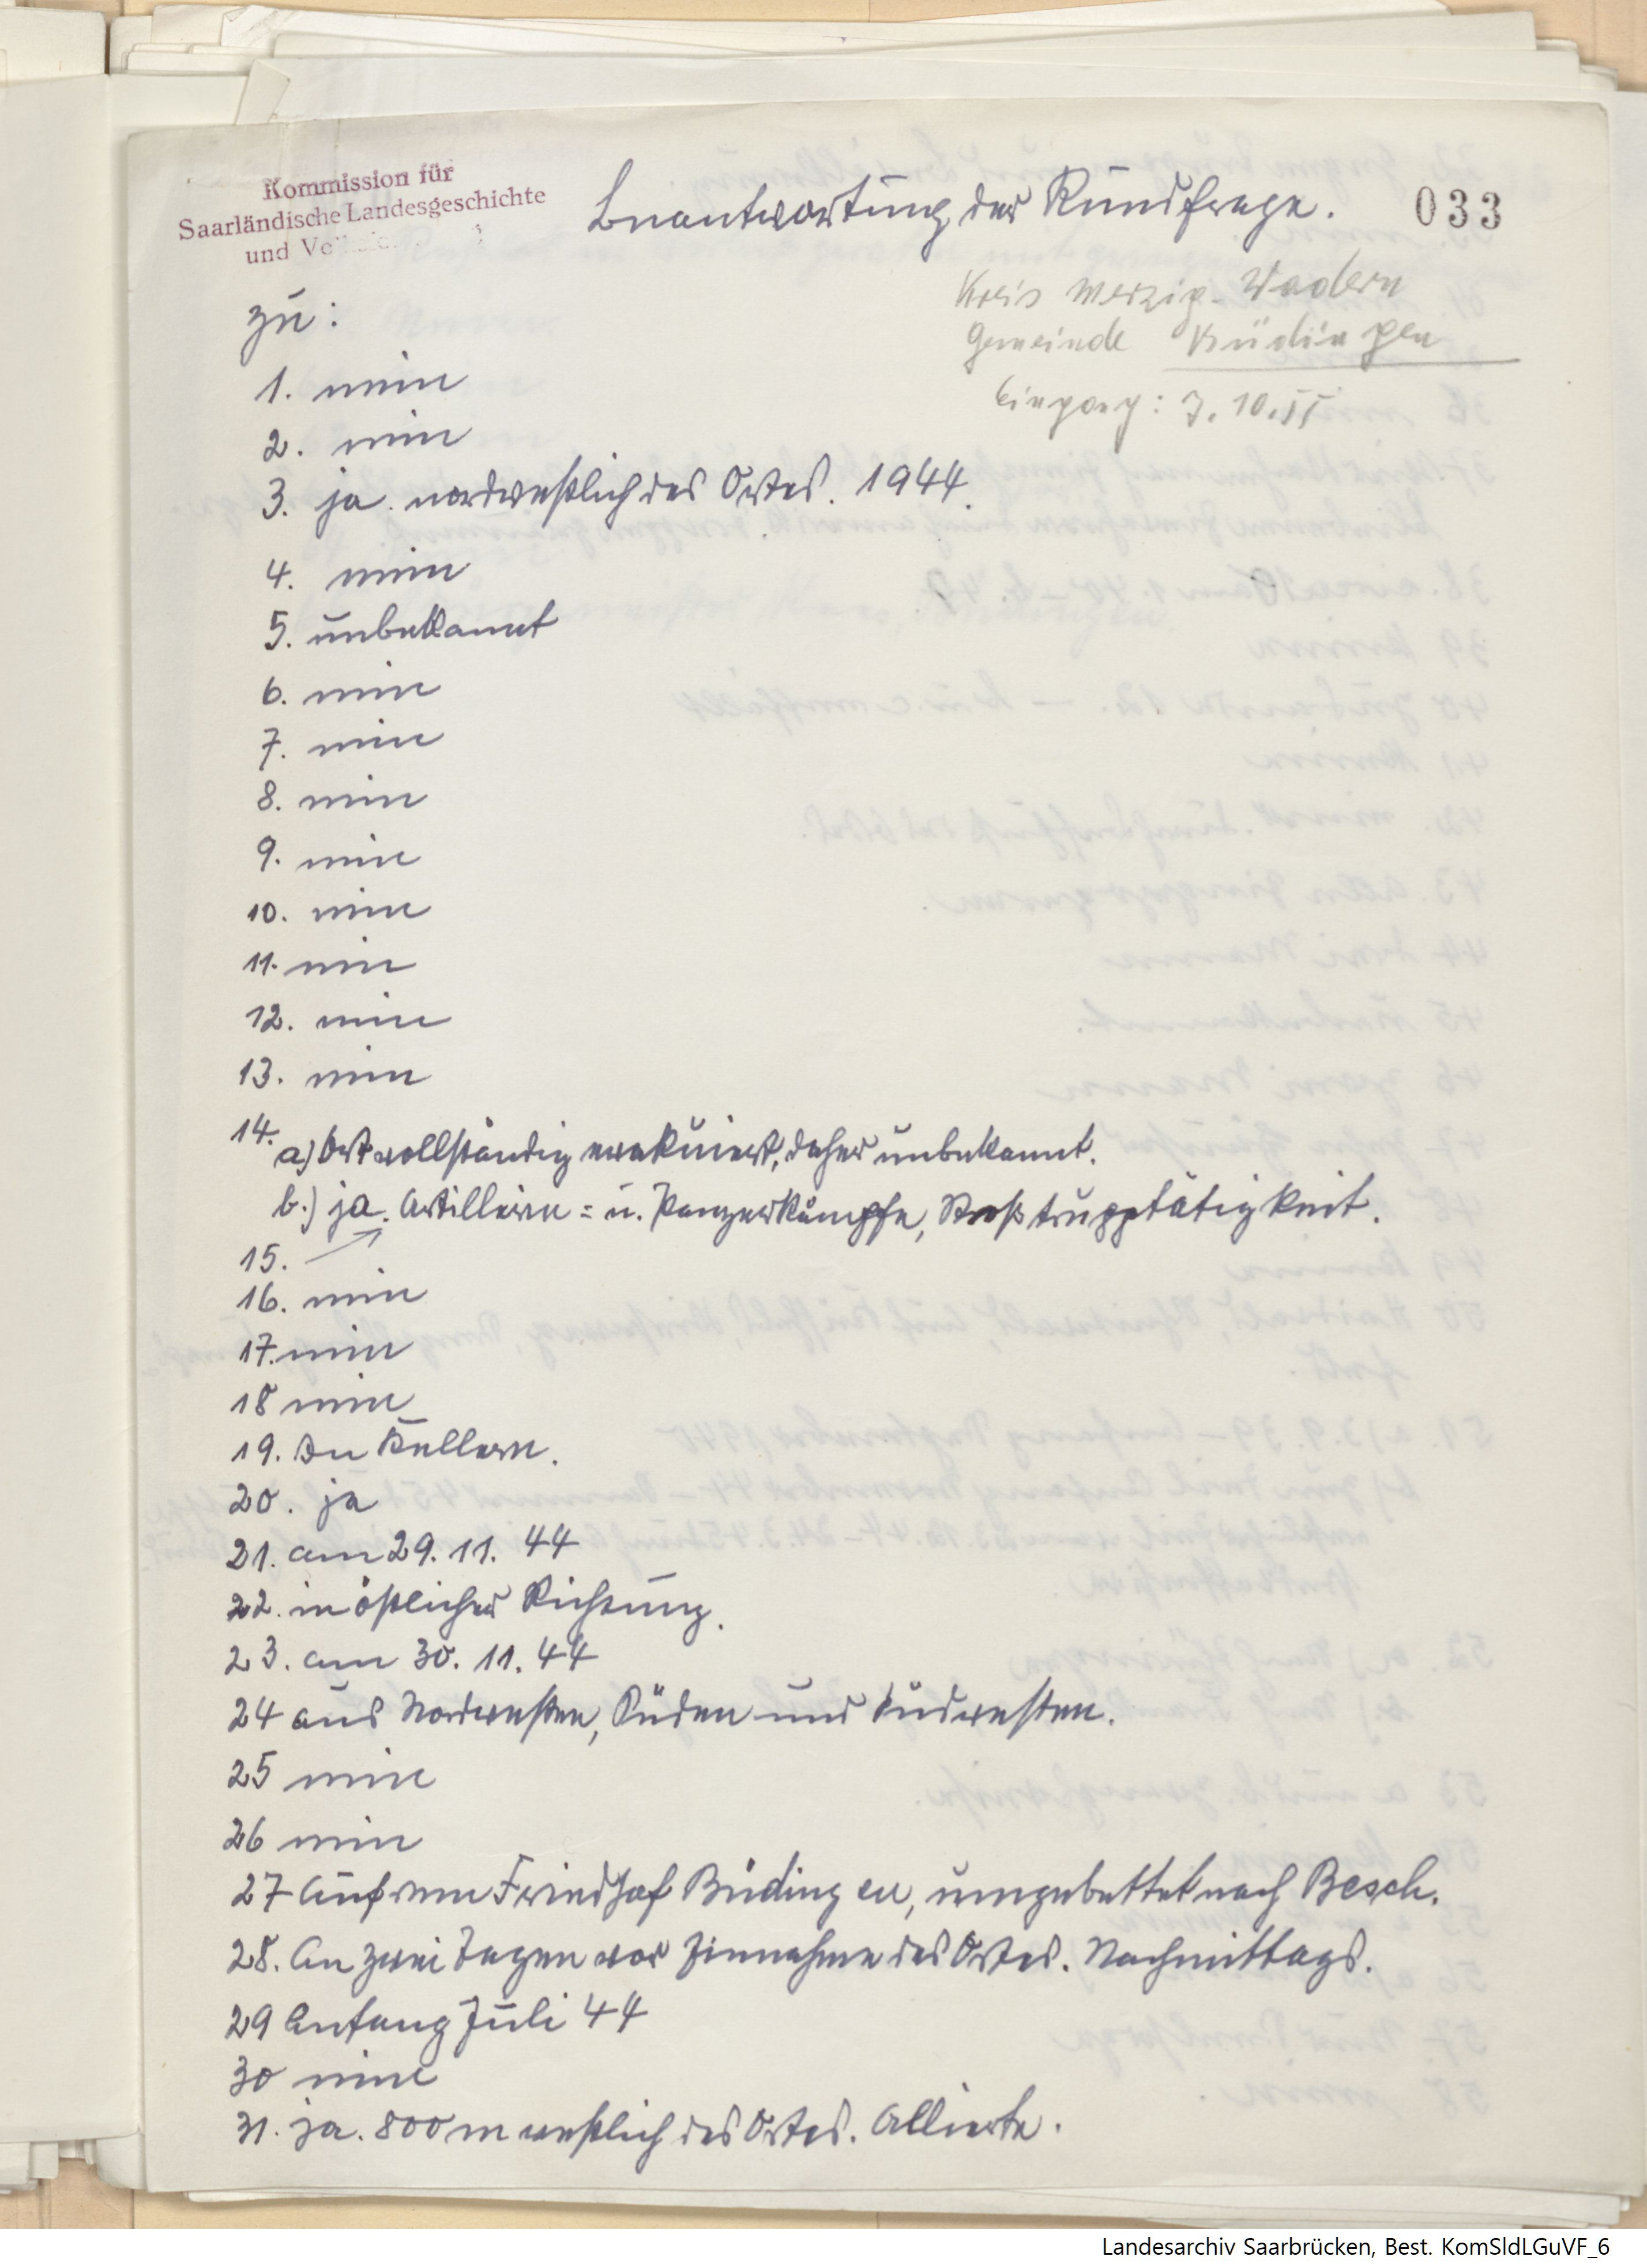 Kommission für
Saarländische Landesgeschichte
und
Beantwortung der Rundfrage.
033
Kreis Merzig-Wadern
Gemeinde Büdingen
Eingang: 7.10.55
zu:
1. nein
2. nein
3. ja. nordwestlich des Ortes. 1944.
4. nein
5. unbekannt
6. nein
7. nein
8. nein
9. nein
10. nein
11. nein
12. nein
13. nein
14. a) Ort vollständig evakuiert, daher unbekannt.
b.) ja. Artillerie= u. Panzerkämpfe, Stoßtrupptätigkeit.
15.
16. nein
17. nein
18 nein
19. In Kellern.
20. ja
21. am 29. 11. 44
22. in östlicher Richtung.
23. am 30. 11. 44
24 aus Nordwesten, Süden und Südwesten.
25 nein
26 nein
27 Auf dem Friedhof Büdingen, umgebettet nach Besch.
28. An zwei Tagen vor Einnahme des Ortes. Nachmittags.
29 Anfang Juli 44
30 nein
31. ja. 800 m westlich des Ortes. Allierte.
Landesarchiv Saarbrücken, Best. KomSldLGuVF_6